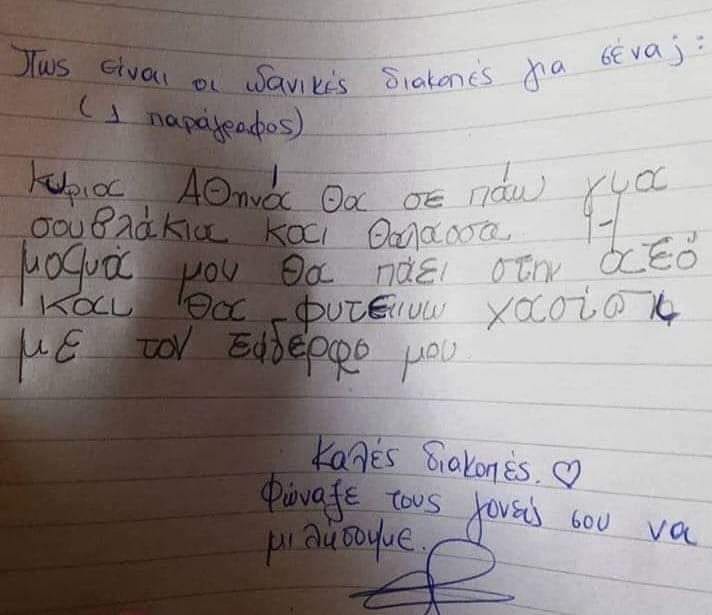 Πως είναι οι ιδανικές διακοπές για σένα; :
(1 παράγραφος)
Κυρια Αθηνά θα σε πάω για
σουβλάκια και θάλασσα. Η
μαμά μου θα πάει στην αεό
και θα φυτεψω χασίσι
με τον ξαδερφο μου.
Καλές διακοπές. ♡
Φώναξε τους γονείς σου να
μιλήσουμε.